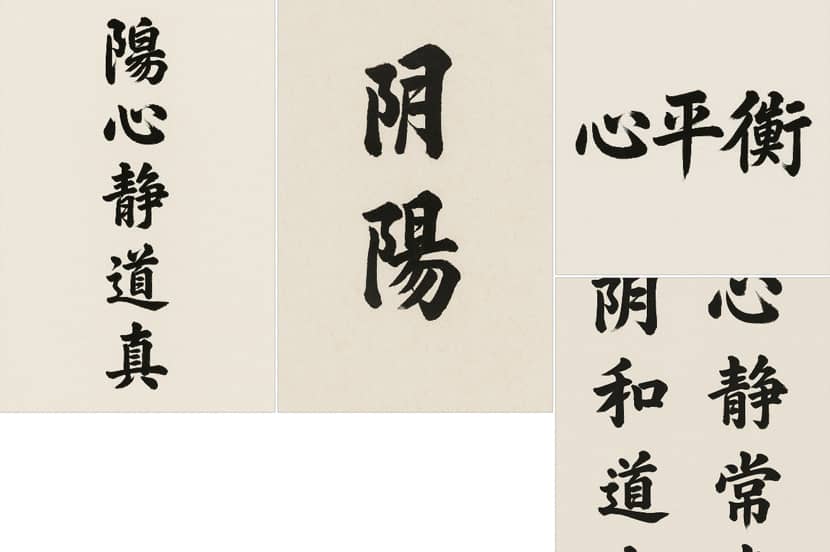 陽心静道真
阴陽
心平衡
心静常
阴和道